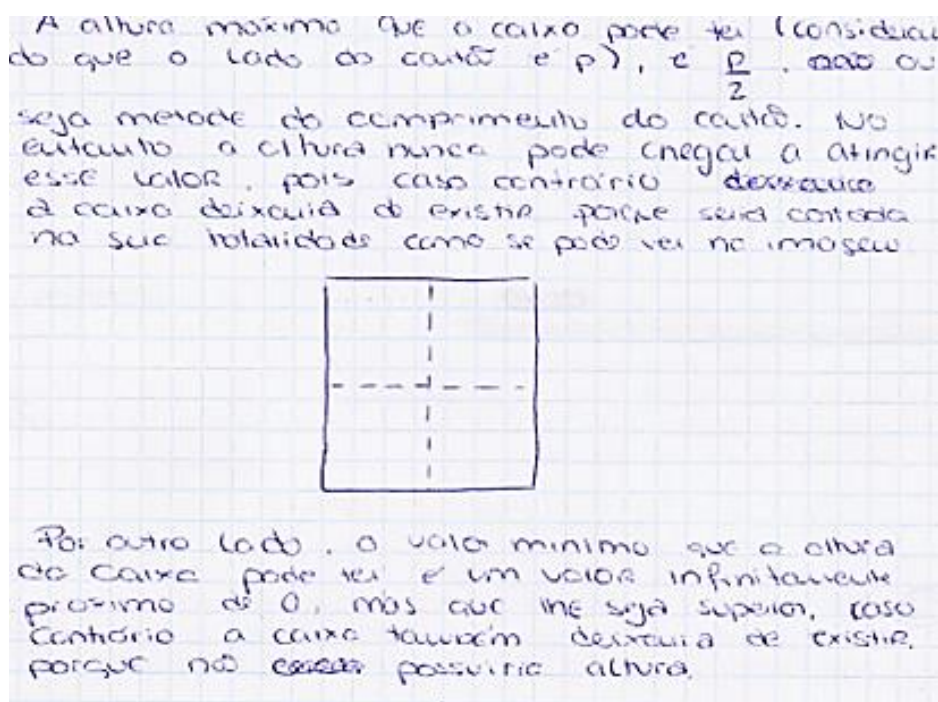 A altura máxima que a caixa pode ter (consideran
do que o lado do cartão é p), é p/2, ou
seja metade do comprimento do cartão. No
entanto a altura nunca pode chegar a atingir
esse valor, pois caso contrário
a caixa deixaria de existir porque seria cortada
na sua totalidade como se pode ver na imagem
Por outro lado, o valor minimo que a altura
da caixa pode ter é um valor infinitamente
proximo de 0, mas que lhe seja superior, caso
contrário a caixa também deixaria de existir,
porque não possuiria altura.